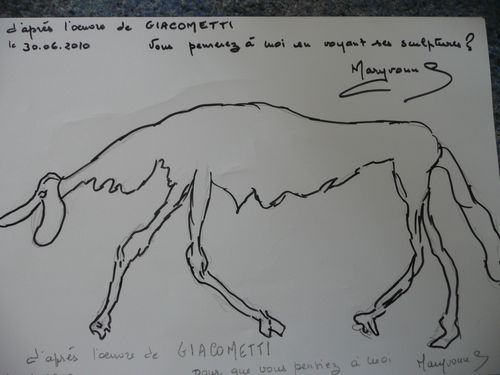 d'après l'oeuvre de GIACOMETTI
le 30.06.2010 Vous penserez à moi en voyant ses sculptures?
Maryvonne
d'après l'oeuvre de GIACOMETTI
pour que vous pensiez à moi Maryvonne